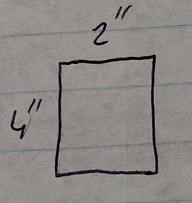 2"
4"